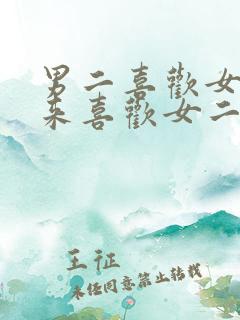 男二喜歡女
來喜歡女二
王征
未經同意禁止轉載